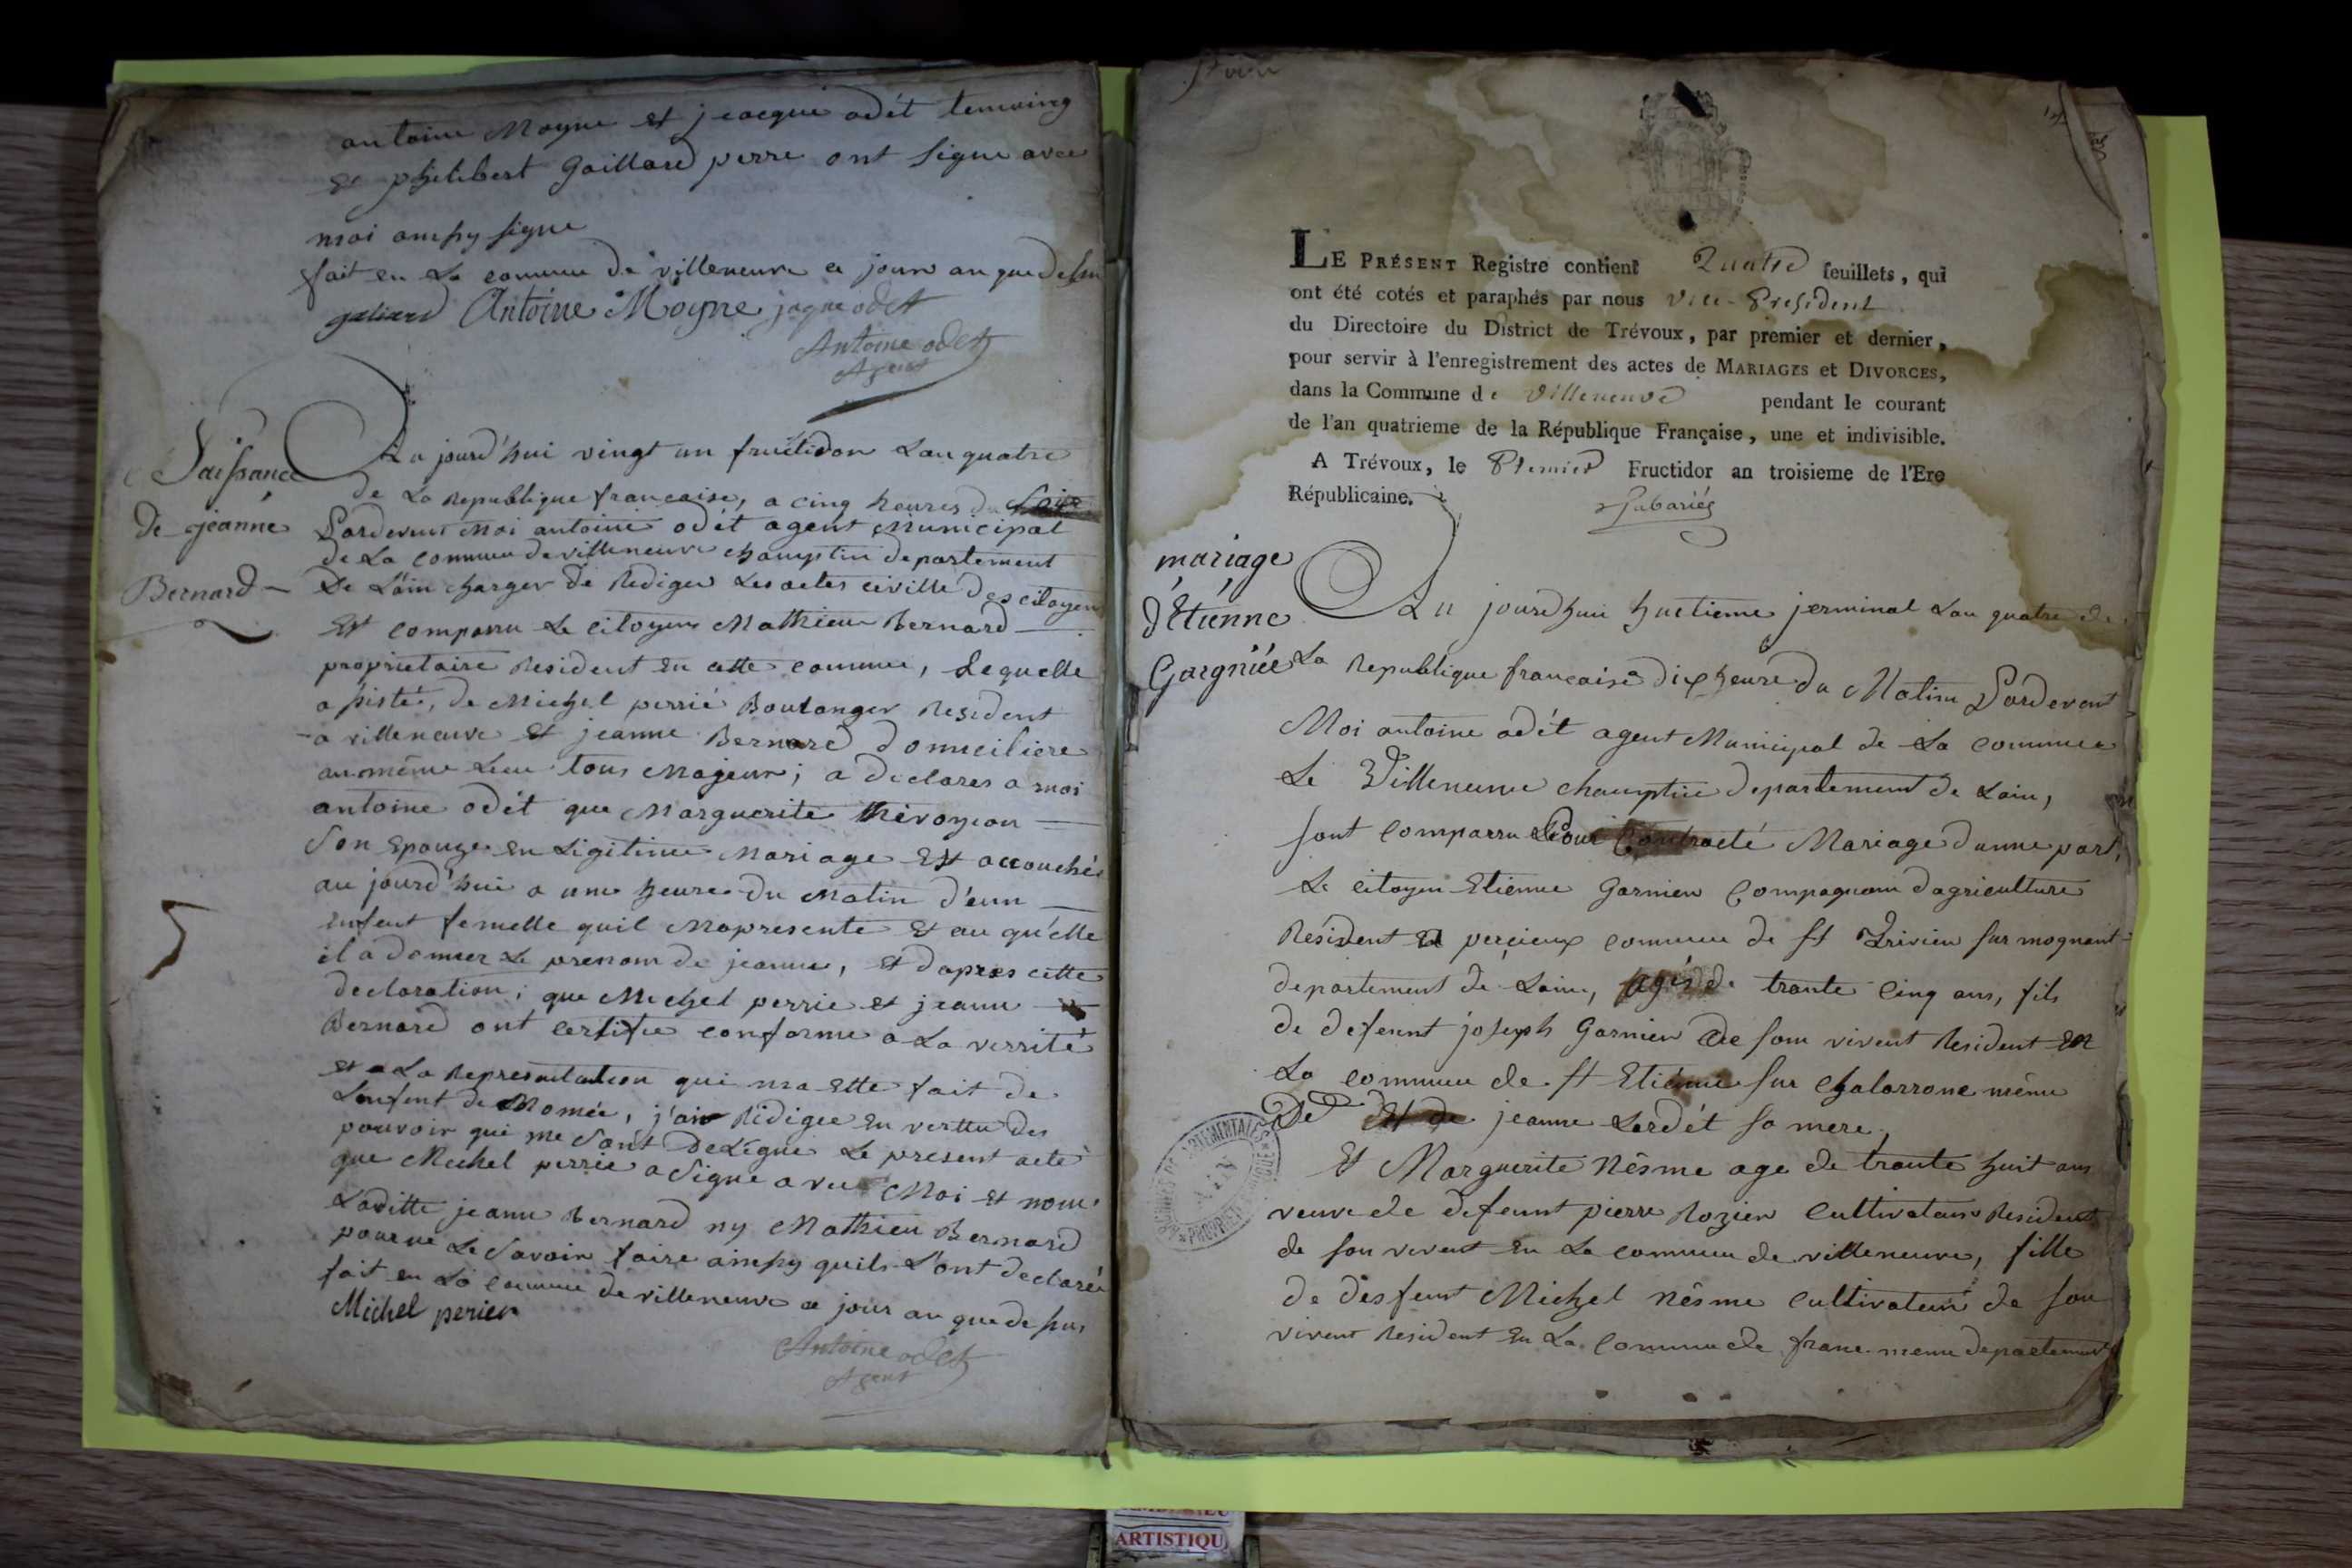 antoine Moyne et jeacque odét temoing
et philibert Gaillard perre ont signe avec
moi ainsy signe
fait en la comune de villeneuve ce jour an que dessu
galiard Antoine Moyne jaque odet
Antoine odet
Agent
Naissance
de jeanne
Bernard
Au jourd'hui vingt un fructidor Lan quatre
de La Republique francaise, a cinq heures du soir
Pardevent Moi antoine odét agent Municipal
de La commune de villeneuve champtin departement
De L'ain charger de Rediger Les actes civille des citoyen
Est comparru Le citoyen Mathieu Bernard
proprietaire Resident en cette commune, Lequelle
a sisté, de Michel perrié Boulanger Resident
a villeneuve et jeanne Bernard domiciliere
au même Lieu tous Majeur; a declarer a moi
antoine odét que Marguerite
Son Epouze en Ligitime Mariage Est accouchée
au jourd'hui a une heure du Matin d'eun
enfent femelle quil Mapresente et au qu'elle
il a donner Le prenom de jeanne, et dapres cette
declaration, que Michel perrie et jeanne
Bernard ont certifie conforme a La verrité
et a La Representation qui ma Ette fait de
Lenfent de Nomée, j'ai Rédigee en verttu des
pouvoir qui me sont Delégué Le present acte
que Michel perrié a Signe avec Moi et nom
Laditte jeanne Bernard ny Mathieu Bernard
pour ne Le Savoir faire ainsy quils L'ont declarée
fait en La comune de villeneuve ce jour an que dessus
Michel perier
Antoine odet
Agent
5
LE PRÉSENT Registre contient Quatre feuillets, qui
ont été cotés et paraphés par nous vice-President
du Directoire du District de Trévoux, par premier et dernier,
pour servir à l'enregistrement des actes de MARIAGES et DIVORCES,
dans la Commune de Villeneuve pendant le courant
de l'an quatrieme de la République Française, une et indivisible.
A Trévoux, le Premier Fructidor an troisieme de l'Ere
Républicaine.
mariage
d'Etienne
Au jourdhui huetieme jerminal Lan quatre de
La Republique francaise dix heure du Matin Pardevent
Moi antoine odét agent Municipal de La commune
de Villeneuve champtin departement de Lain,
sont comparru Pour Contracté Mariage dunne part,
Le citoyen Etienne Garnier Compagnon dagriculture
Résident a perçieux commune de st Trivier sur mognant
departement de Lain, agés de trante cinq ans, fils
de defeunt joseph Garnier de son vivent Resident en
La commune de st Etienne sur chalarrone même
Det et de jeanne Lardét sa mere,
Et Marguerite Nésme age de trante huit ans
veuve de defeunt pierre Rozier Cultivateur Resident
de son vivent en La commune de villeneuve, fille
de desfeunt Michel Nésme cultivateur de son
vivent Resident en La commune de france meme departement
ARCHIVES DEPARTEMENTALES
AIN
ARTISTIQU